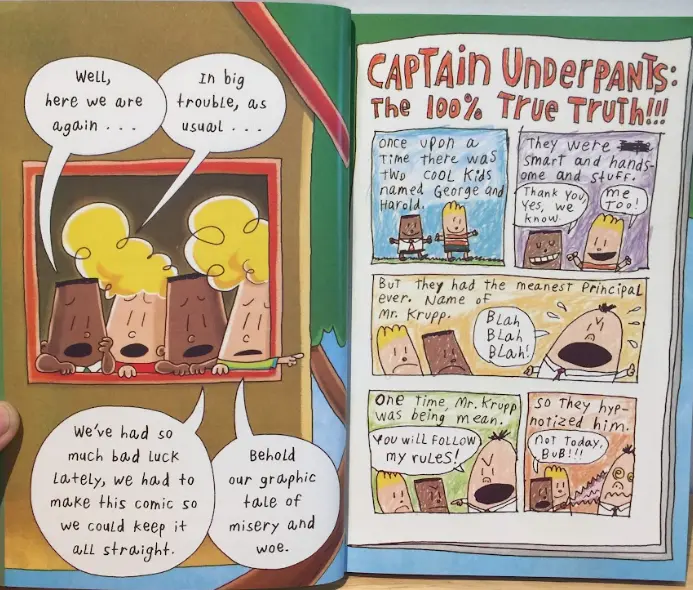 Well,
here we are
again . . .
In big
trouble, as
usual . . .
We've had so
much bad luck
lately, we had to
make this comic so
we could keep it
all straight.
Behold
our graphic
tale of
misery and
woe.
CAPTAIN UNDERPANTS:
THE 100% TRUE TRUTH!!!
once upon a
Time there was
two cool kids
named George and
Harold.
They were
smart and hands-
ome and stuff.
Thank you,
yes, we
know.
me
Too!
But they had the meanest Principal
ever. Name of
Mr. Krupp.
Blah
Blah
Blah!
One Time, Mr. Krupp
was being mean.
You will follow
my rules!
so they hyp-
notized him.
not Today,
BuB!!!